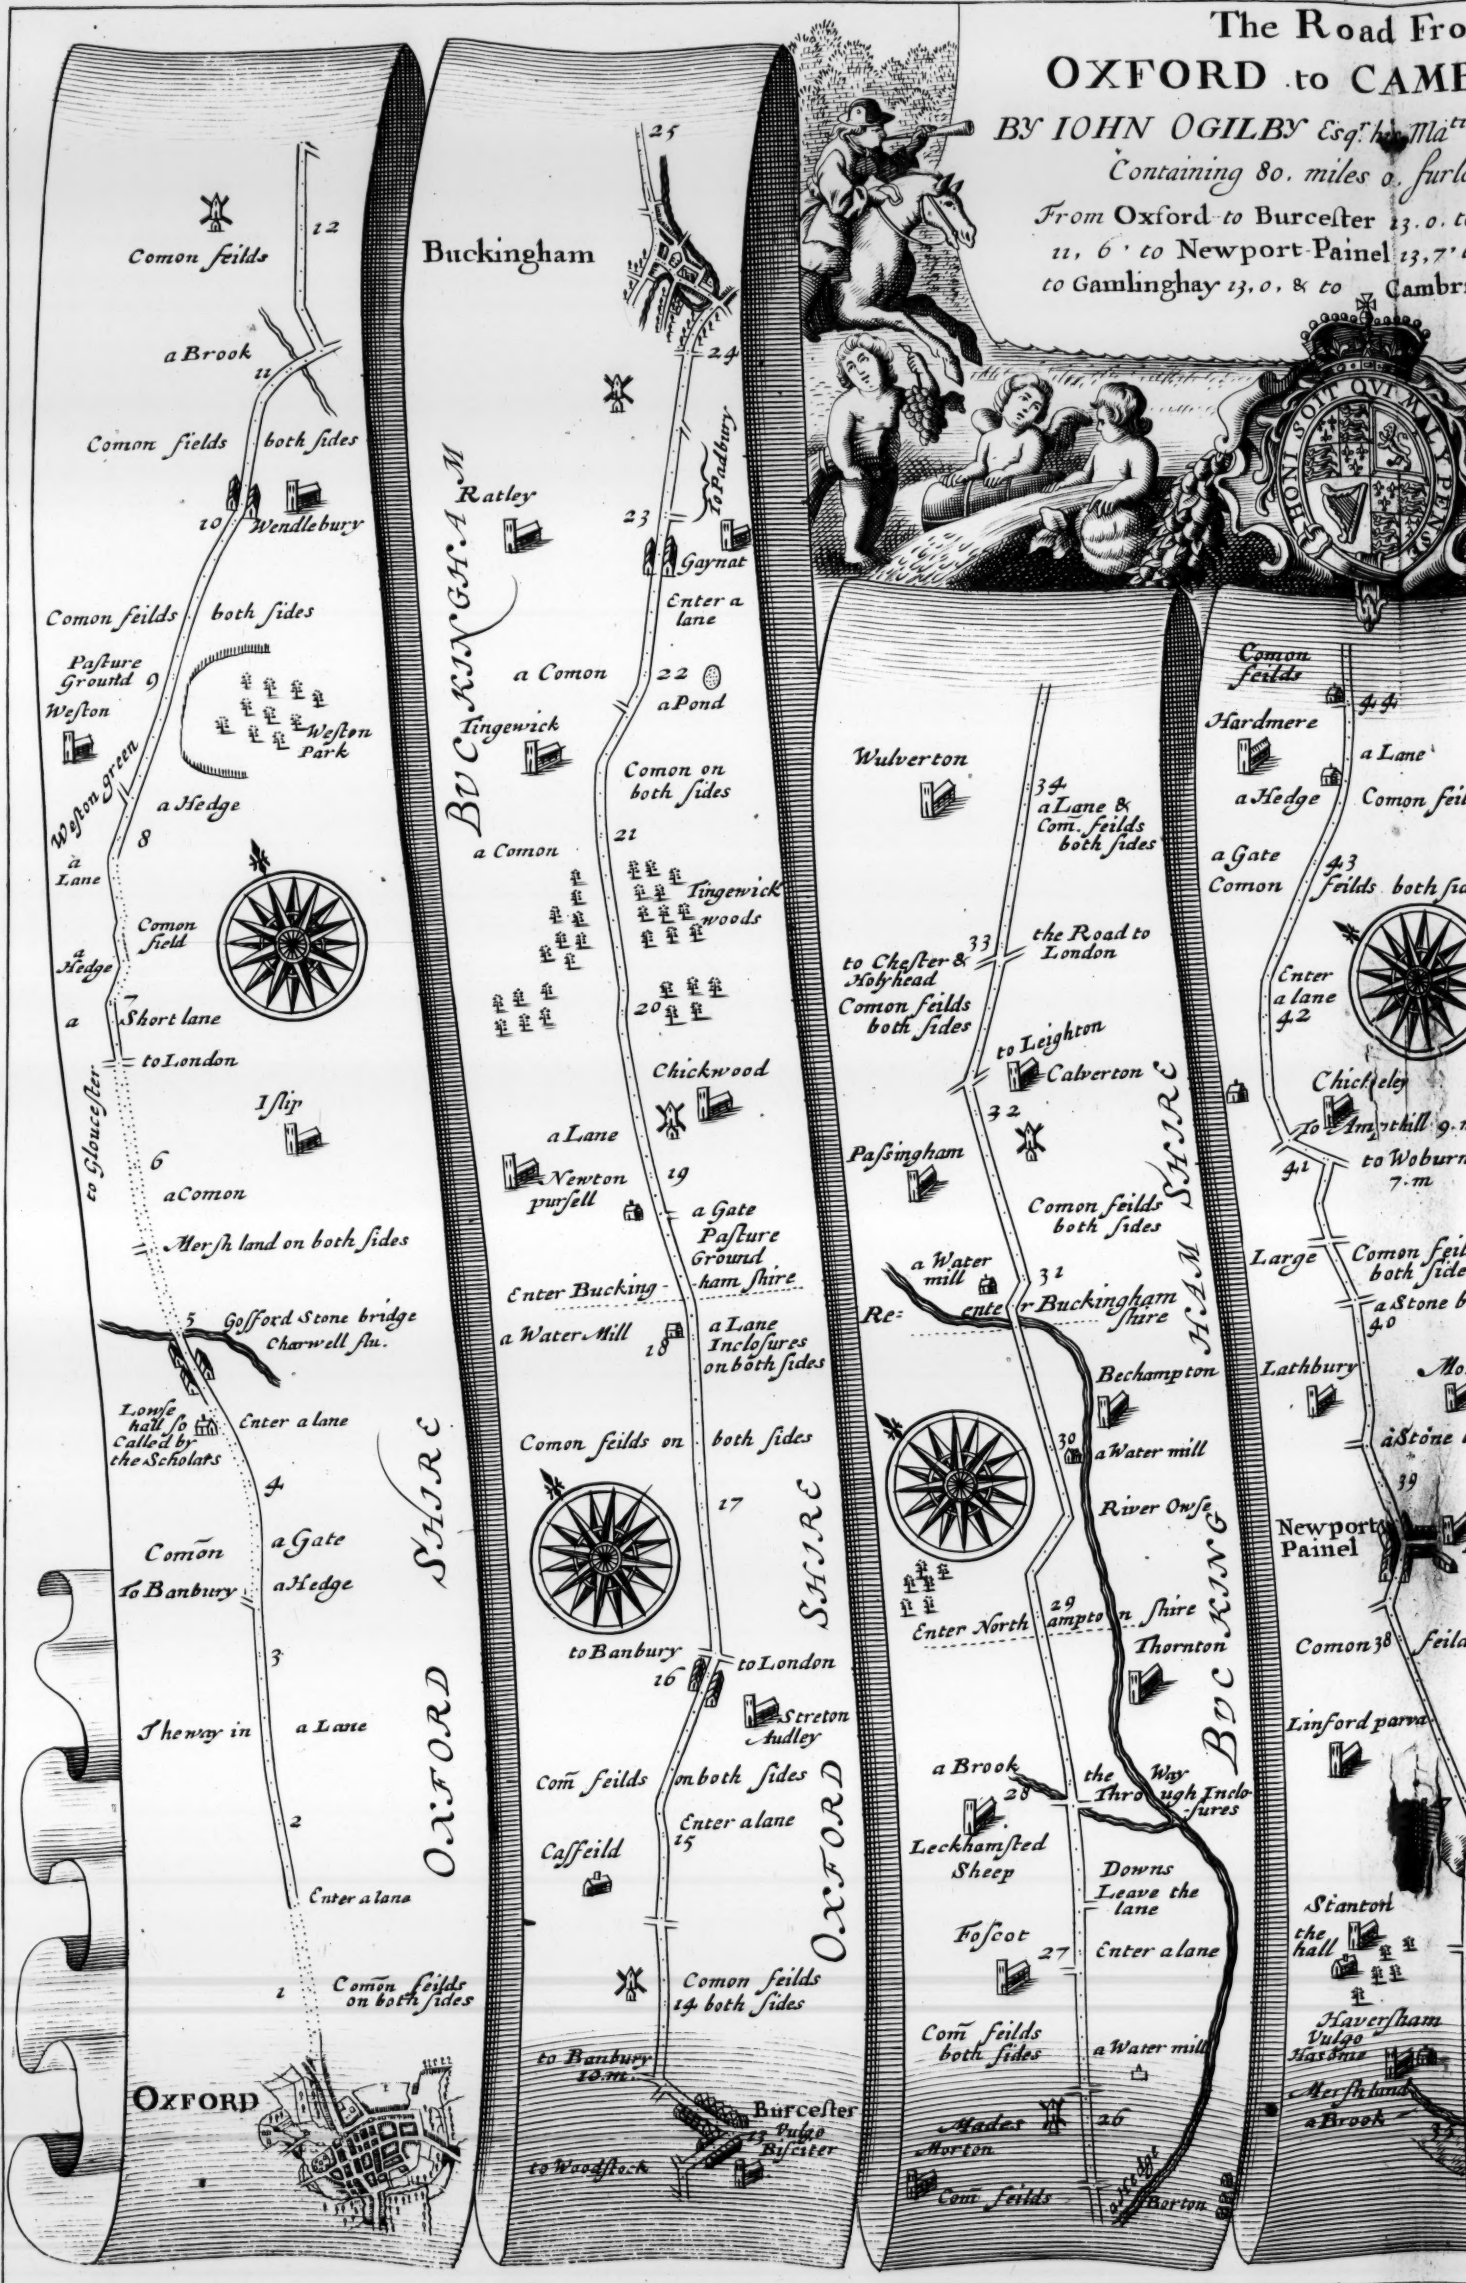 The Road Fro
OXFORD to CAMB
BY IOHN OGILBY Esqr. his Matie
Containing 80. miles 0. furlo
From Oxford to Burcester 13.0. to
11, 6' to Newport-Painel 13,7'
to Gamlinghay 13,0, & to Cambr
HONI SOIT QVI MALY PENSE
12
Comon feilds
a Brook
11
Comon fields both sides
10
Wendlebury
Comon feilds both sides
Pasture
Ground 9
Weston
Weston
Park
Weston green
a Hedge
8
a
Lane
Comon
field
a
Hedge
7
a Short lane
to London
to Gloucester
Islip
6
a Comon
Mersh land on both sides
5
Gosford Stone bridge
Charwell flu.
Lowse
hall so
Called by
the Scholars
Enter a lane
4
Comōn
a Gate
To Banbury
a Hedge
3
The way in a Lane
2
Enter a lane
1
Comōn feilds
on both sides
OXFORD
OXFORD SHIRE
25
Buckingham
24
To Padbury
Ratley
23
Gaynat
Enter a
lane
a Comon
22
a Pond
Tingewick
Comon on
both sides
21
a Comon
Tingewick
woods
20
Chickwood
a Lane
Newton
pursell
19
a Gate
Pasture
Ground
Enter Bucking-ham shire
a Water Mill
18
a Lane
Inclosures
on both sides
Comon feilds on both sides
17
to Banbury
16
to London
Streton
Audley
Com̄ feilds on both sides
Enter a lane
15
Casfeild
Comon feilds
14 both sides
to Banbury
10.m.
Burcester
13 Vulgo
Bisciter
to Woodstock
BVCKINGHAM
OXFORD SHIRE
Wulverton
34
a Lane &
Com̄. feilds
both sides
33
the Road to
London
to Chester &
Holyhead
Comon feilds
both sides
to Leighton
Calverton
32
Passingham
Comon feilds
both sides
a Water
mill
31
Re= enter Buckingham
shire
Bechampton
30
a Water mill
River Owse
29
Enter Northampton shire
Thornton
a Brook
28
the Way
Through Inclo-
sures
Leckhamsted
Sheep Downs
Leave the
lane
Foscot
27
Enter a lane
Com̄ feilds
both sides
a Water mill
Mades
Morton
26
Com̄ feilds
a Hedge
Borton
BVCKINGHAM SHIRE
Comon
feilds
44
Hardmere
a Lane
a Hedge
Comon feil
a Gate
43
Comon feilds both sid
Enter
a lane
42
Chicheley
To Ampthill 9.m
41
to Woburn
7.m
Large Comon feil
both side
a Stone b
40
Lathbury
Mo
a Stone
39
Newport
Painel
Comon 38 feild
Linford parva
Stanton
the
hall
Haversham
Vulgo
Mersh land
a Brook
35